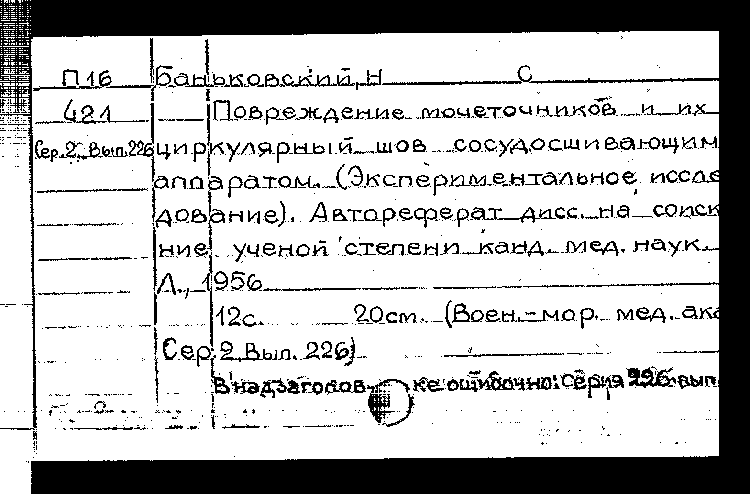 П16 Баньковский, Н С
421 Повреждение мочеточников и их
Сер. 2, Вып. 226 циркулярный шов сосудосшивающим
аппаратом. (Экспериментальное иссле
дование). Автореферат дисс. на соиск
ние ученой степени канд. мед. наук.
Л., 1956
12с. 20см. (Воен.-мор. мед. ака
Сер. 2 Вып. 226)
В надзаголов- ке ошибочно: Серия 226 вып.